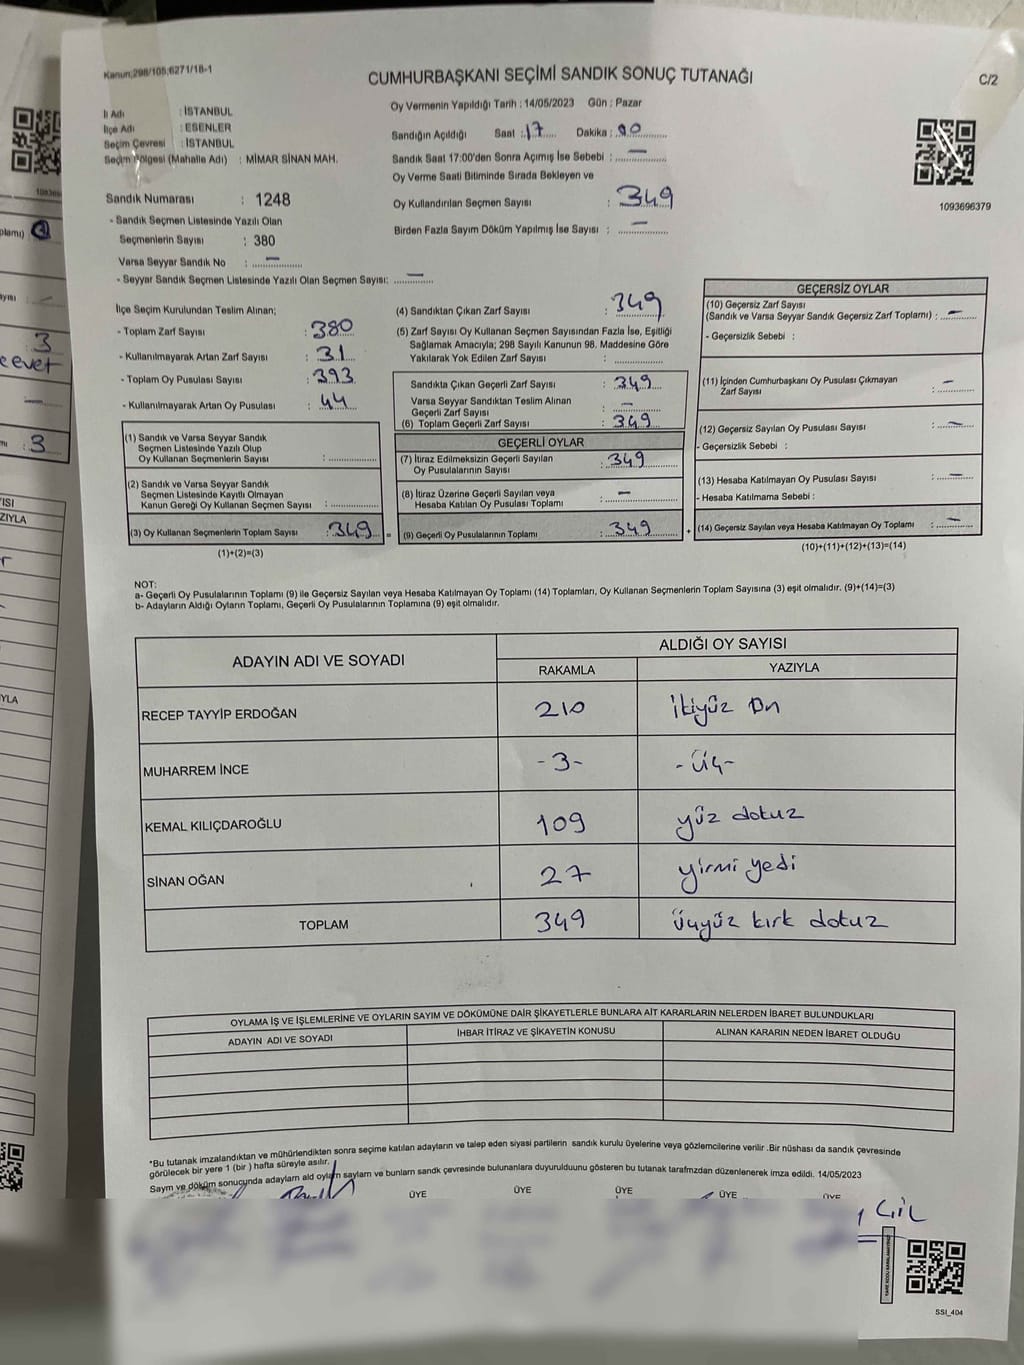 Kanun;298/105;6271/18-1
CUMHURBAŞKANI SEÇİMİ SANDIK SONUÇ TUTANAĞI
C/2
İl Adı : İSTANBUL
İlçe Adı : ESENLER
Seçim Çevresi : İSTANBUL
Seçim Bölgesi (Mahalle Adı) : MİMAR SİNAN MAH.
Oy Vermenin Yapıldığı Tarih : 14/05/2023 Gün : Pazar
Sandığın Açıldığı Saat : 17 Dakika : 00
Sandık Saat 17:00'den Sonra Açımış İse Sebebi : —
Oy Verme Saati Bitiminde Sırada Bekleyen ve
Oy Kullandırılan Seçmen Sayısı : 349
Birden Fazla Sayım Döküm Yapılmış İse Sayısı : —
1093696379
Sandık Numarası : 1248
- Sandık Seçmen Listesinde Yazılı Olan
Seçmenlerin Sayısı : 380
Varsa Seyyar Sandık No : —
- Seyyar Sandık Seçmen Listesinde Yazılı Olan Seçmen Sayısı: —
İlçe Seçim Kurulundan Teslim Alınan;
- Toplam Zarf Sayısı : 380
- Kullanılmayarak Artan Zarf Sayısı : 31
- Toplam Oy Pusulası Sayısı : 393
- Kullanılmayarak Artan Oy Pusulası : 44
(1) Sandık ve Varsa Seyyar Sandık
Seçmen Listesinde Yazılı Olup
Oy Kullanan Seçmenlerin Sayısı :
(2) Sandık ve Varsa Seyyar Sandık
Seçmen Listesinde Kayıtlı Olmayan
Kanun Gereği Oy Kullanan Seçmen Sayısı :
(3) Oy Kullanan Seçmenlerin Toplam Sayısı : 349 =
(1)+(2)=(3)
(4) Sandıktan Çıkan Zarf Sayısı : 349
(5) Zarf Sayısı Oy Kullanan Seçmen Sayısından Fazla İse, Eşitliği
Sağlamak Amacıyla; 298 Sayılı Kanunun 98. Maddesine Göre
Yakılarak Yok Edilen Zarf Sayısı :
Sandıkta Çıkan Geçerli Zarf Sayısı : 349
Varsa Seyyar Sandıktan Teslim Alınan
Geçerli Zarf Sayısı : —
(6) Toplam Geçerli Zarf Sayısı : 349
GEÇERLİ OYLAR
(7) İtiraz Edilmeksizin Geçerli Sayılan
Oy Pusulalarının Sayısı : 349
(8) İtiraz Üzerine Geçerli Sayılan veya
Hesaba Katılan Oy Pusulası Toplamı : —
(9) Geçerli Oy Pusulalarının Toplamı : 349 +
GEÇERSİZ OYLAR
(10) Geçersiz Zarf Sayısı
(Sandık ve Varsa Seyyar Sandık Geçersiz Zarf Toplamı) : —
- Geçersizlik Sebebi :
(11) İçinden Cumhurbaşkanı Oy Pusulası Çıkmayan
Zarf Sayısı : —
(12) Geçersiz Sayılan Oy Pusulası Sayısı : —
- Geçersizlik Sebebi :
(13) Hesaba Katılmayan Oy Pusulası Sayısı : —
- Hesaba Katılmama Sebebi :
(14) Geçersiz Sayılan veya Hesaba Katılmayan Oy Toplamı : —
(10)+(11)+(12)+(13)=(14)
NOT:
a- Geçerli Oy Pusulalarının Toplamı (9) ile Geçersiz Sayılan veya Hesaba Katılmayan Oy Toplamı (14) Toplamları, Oy Kullanan Seçmenlerin Toplam Sayısına (3) eşit olmalıdır. (9)+(14)=(3)
b- Adayların Aldığı Oyların Toplamı, Geçerli Oy Pusulalarının Toplamına (9) eşit olmalıdır.
ADAYIN ADI VE SOYADI
ALDIĞI OY SAYISI
RAKAMLA YAZIYLA
RECEP TAYYİP ERDOĞAN 210 ikiyüz on
MUHARREM İNCE -3- -üç-
KEMAL KILIÇDAROĞLU 109 yüz dokuz
SİNAN OĞAN 27 yirmi yedi
TOPLAM 349 üçyüz kırk dokuz
OYLAMA İŞ VE İŞLEMLERİNE VE OYLARIN SAYIM VE DÖKÜMÜNE DAİR ŞİKAYETLERLE BUNLARA AİT KARARLARIN NELERDEN İBARET BULUNDUKLARI
ADAYIN ADI VE SOYADI İHBAR İTİRAZ VE ŞİKAYETİN KONUSU ALINAN KARARIN NEDEN İBARET OLDUĞU
*Bu tutanak imzalandıktan ve mühürlendikten sonra seçime katılan adayların ve talep eden siyasi partilerin sandık kurulu üyelerine veya gözlemcilerine verilir .Bir nüshası da sandık çevresinde
görülecek bir yere 1 (bir ) hafta süreyle asılır.
Sayım ve döküm sonucunda adayların ald oyların sayları ve bunların sandk çevresinde bulunanlara duyurulduunu gösteren bu tutanak tarafmzdan düzenlenerek imza edildi. 14/05/2023
ÜYE ÜYE ÜYE ÜYE ÜYE
SSI_404
3
e evet
3